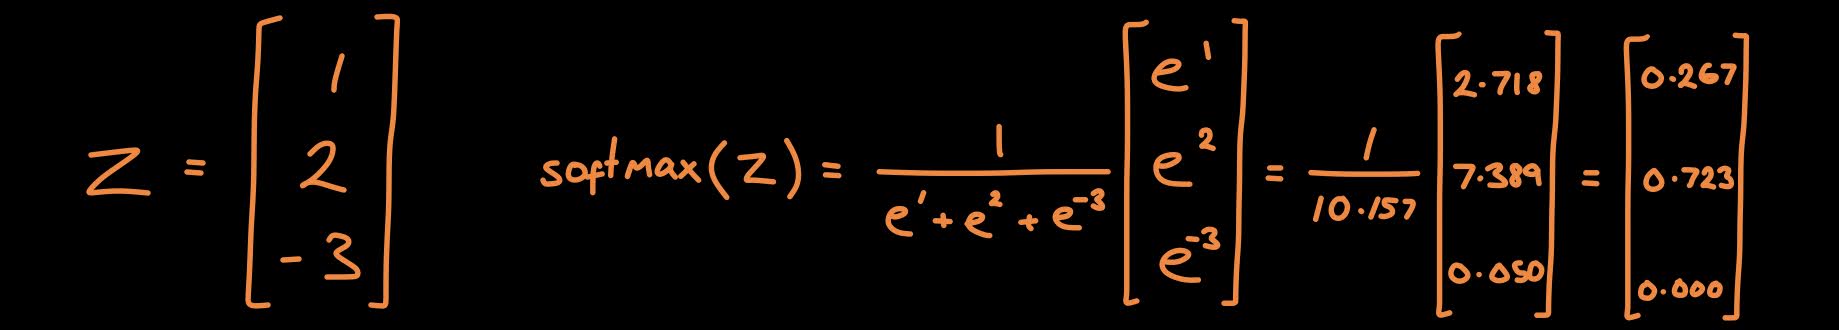 z = [1 2 -3] softmax(z) = 1/(e^1 + e^2 + e^-3) [e^1 e^2 e^-3] = 1/10.157 [2.718 7.389 0.050] = [0.267 0.723 0.000]